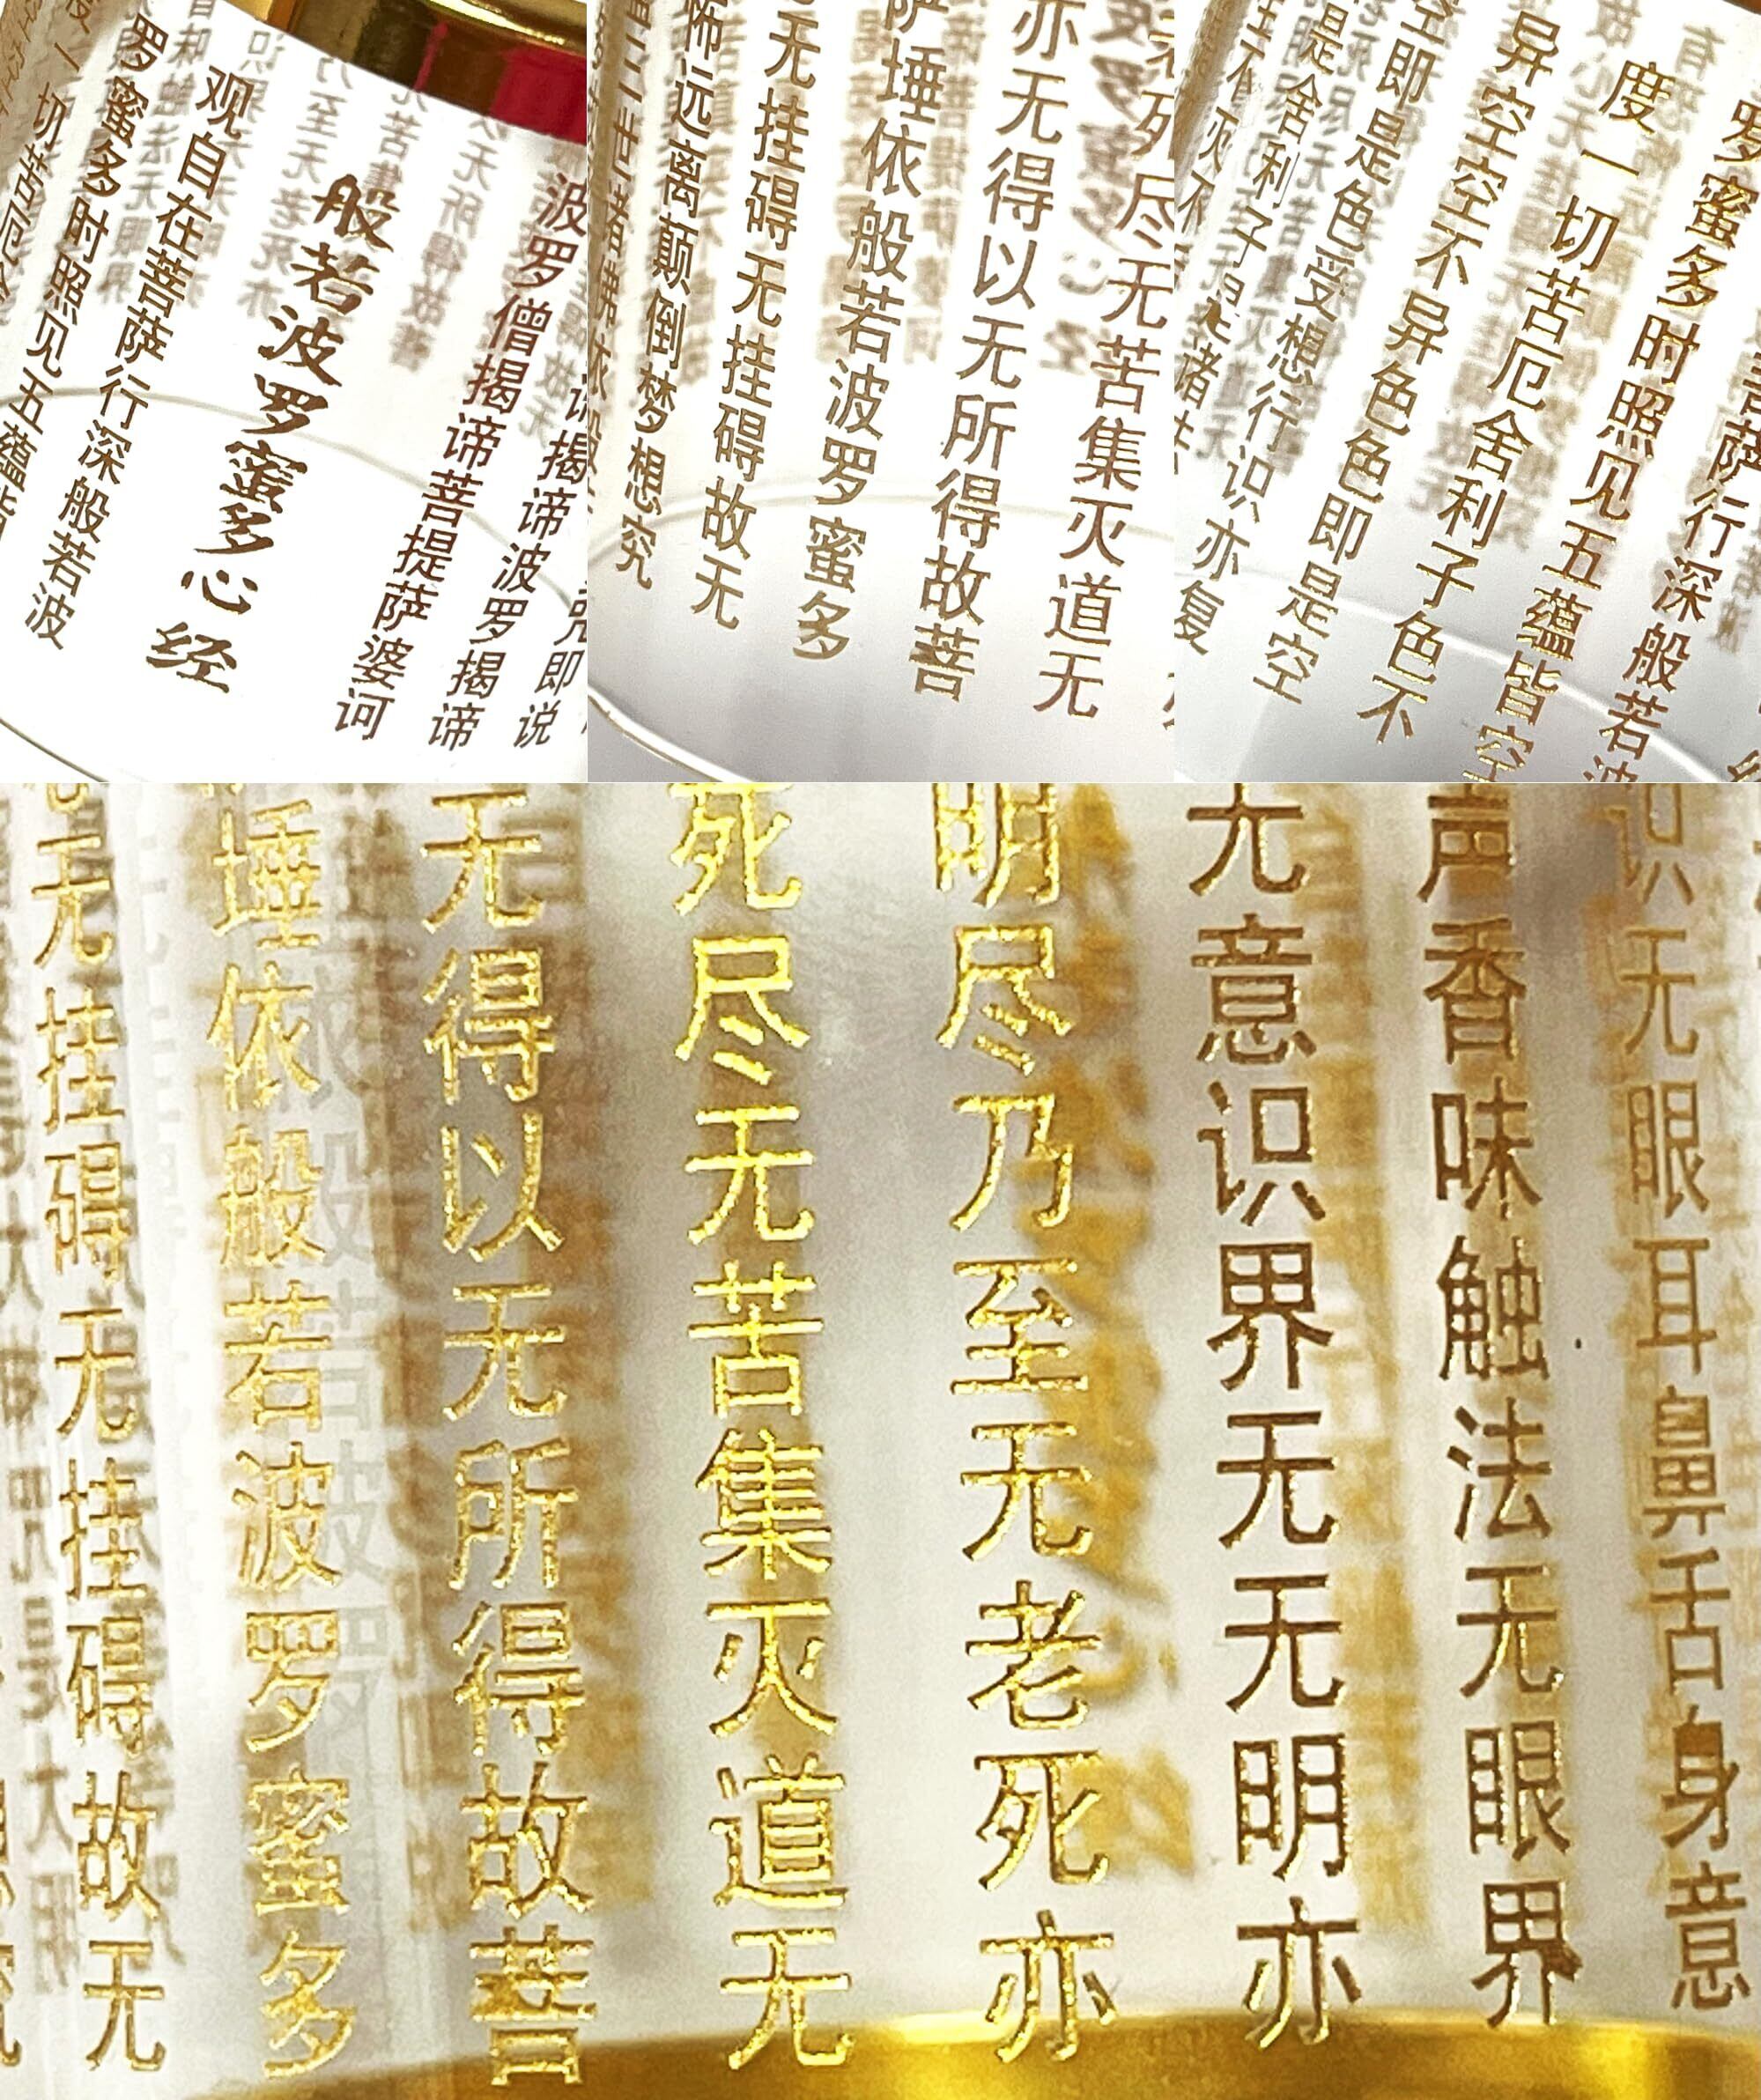 即说
揭谛波罗揭谛
波罗僧揭谛菩提萨婆诃
般若波罗蜜多心经
观自在菩萨行深般若波
罗蜜多时照见五蕴皆
一切苦厄
死尽无苦集灭道无
亦无得以无所得故菩
萨埵依般若波罗蜜多
无挂碍无挂碍故无
怖远离颠倒梦想究
三世诸佛依般
菩萨行深般若波
罗蜜多时照见五蕴皆空
度一切苦厄舍利子色不
异空空不异色色即是空
空即是色受想行识亦复
是舍利子是诸
识无眼耳鼻舌身意
声香味触法无眼界
无意识界无无明亦
明尽乃至无老死亦
死尽无苦集灭道无
无得以无所得故菩
埵依般若波罗蜜多
无挂碍无挂碍故无